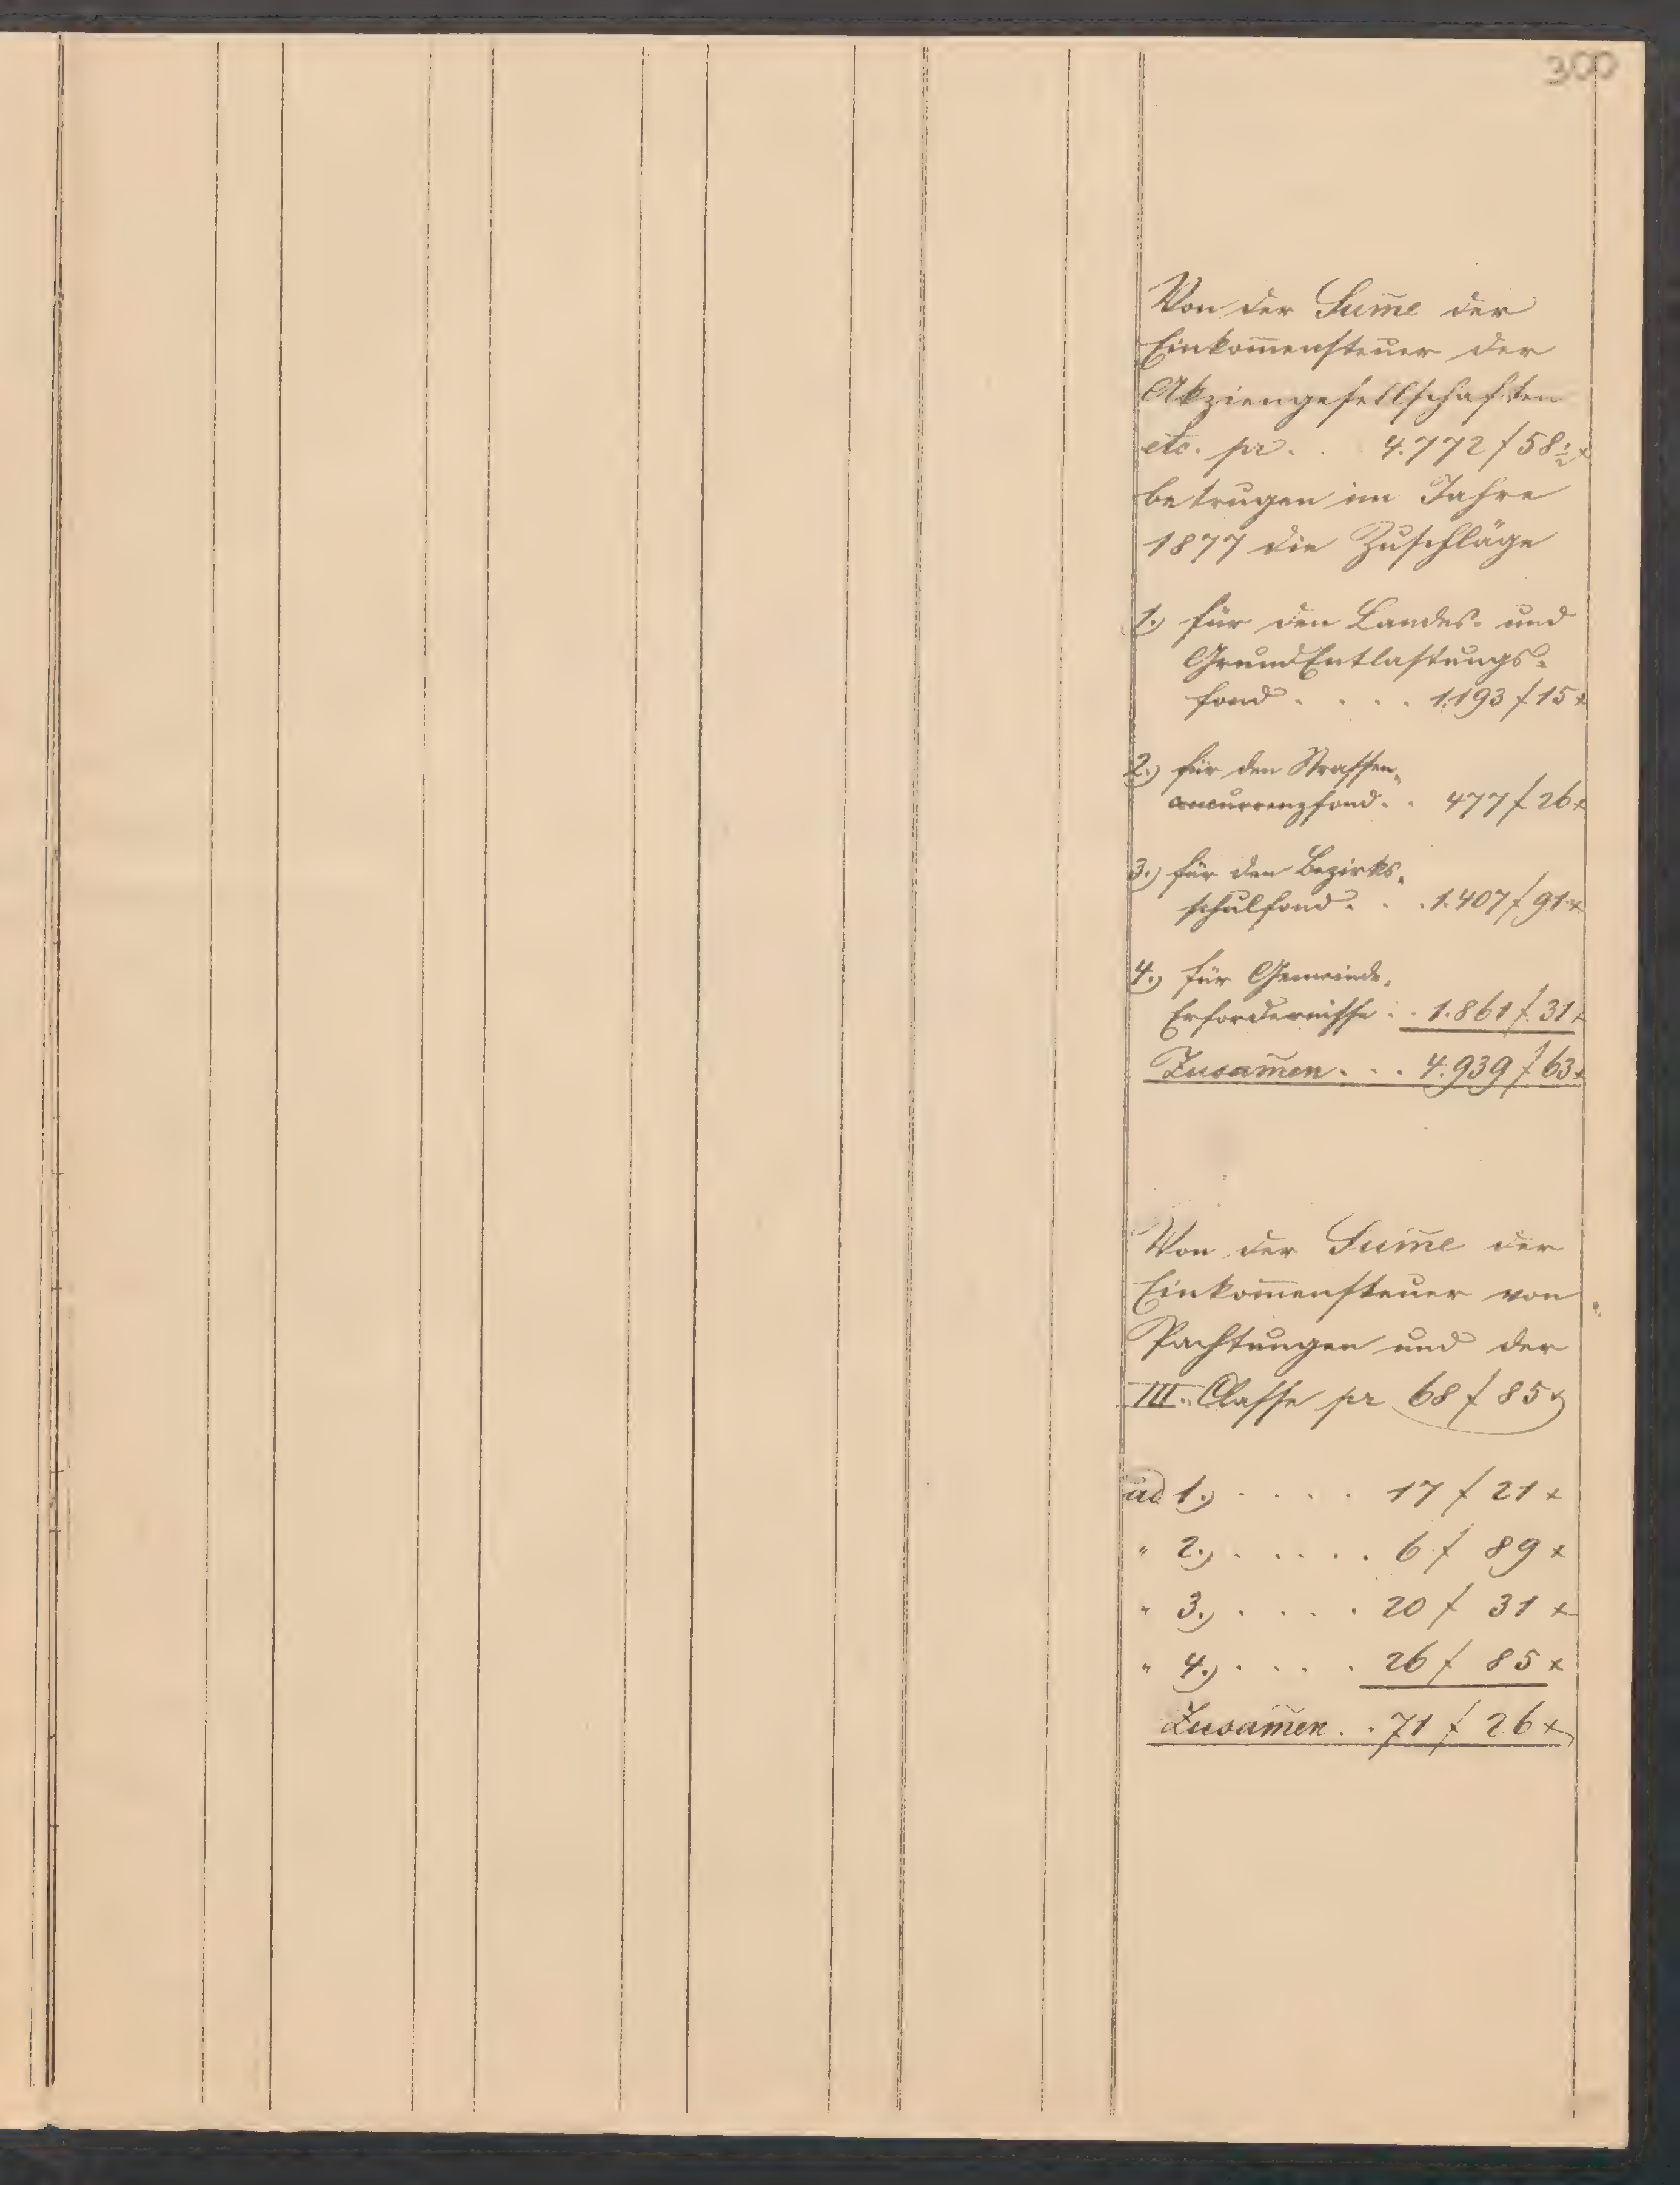 300
Von der Sum̄e der
Einkom̄ensteuer der
Akziengesellschaften
etc. pr. . . 4.772 f 58½ x
betrugen im Jahre
1877 die Zuschläge
1.) für den Landes- und
GrundEntlastungs-
fond . . . . 1.193 f 15 x
2.) für den Strassen-
concurrenzfond. . 477 f 26 x
3.) für den Bezirks-
schulfond. . . 1.407 f 91 x
4.) für Gemeinde-
Erfordernisse . . 1.861 f 31 x
Zusam̄en. . . 4.939 f 63 x
Von der Sum̄e der
Einkom̄ensteuer von
Pachtungen und der
III. Classe pr 68 f 85 x
ad 1.) . . . . 17 f 21 x
" 2.) . . . . . 6 f 89 x
" 3.) . . . . 20 f 31 x
" 4.) . . . . 26 f 85 x
Zusam̄en. . 71 f 26 x